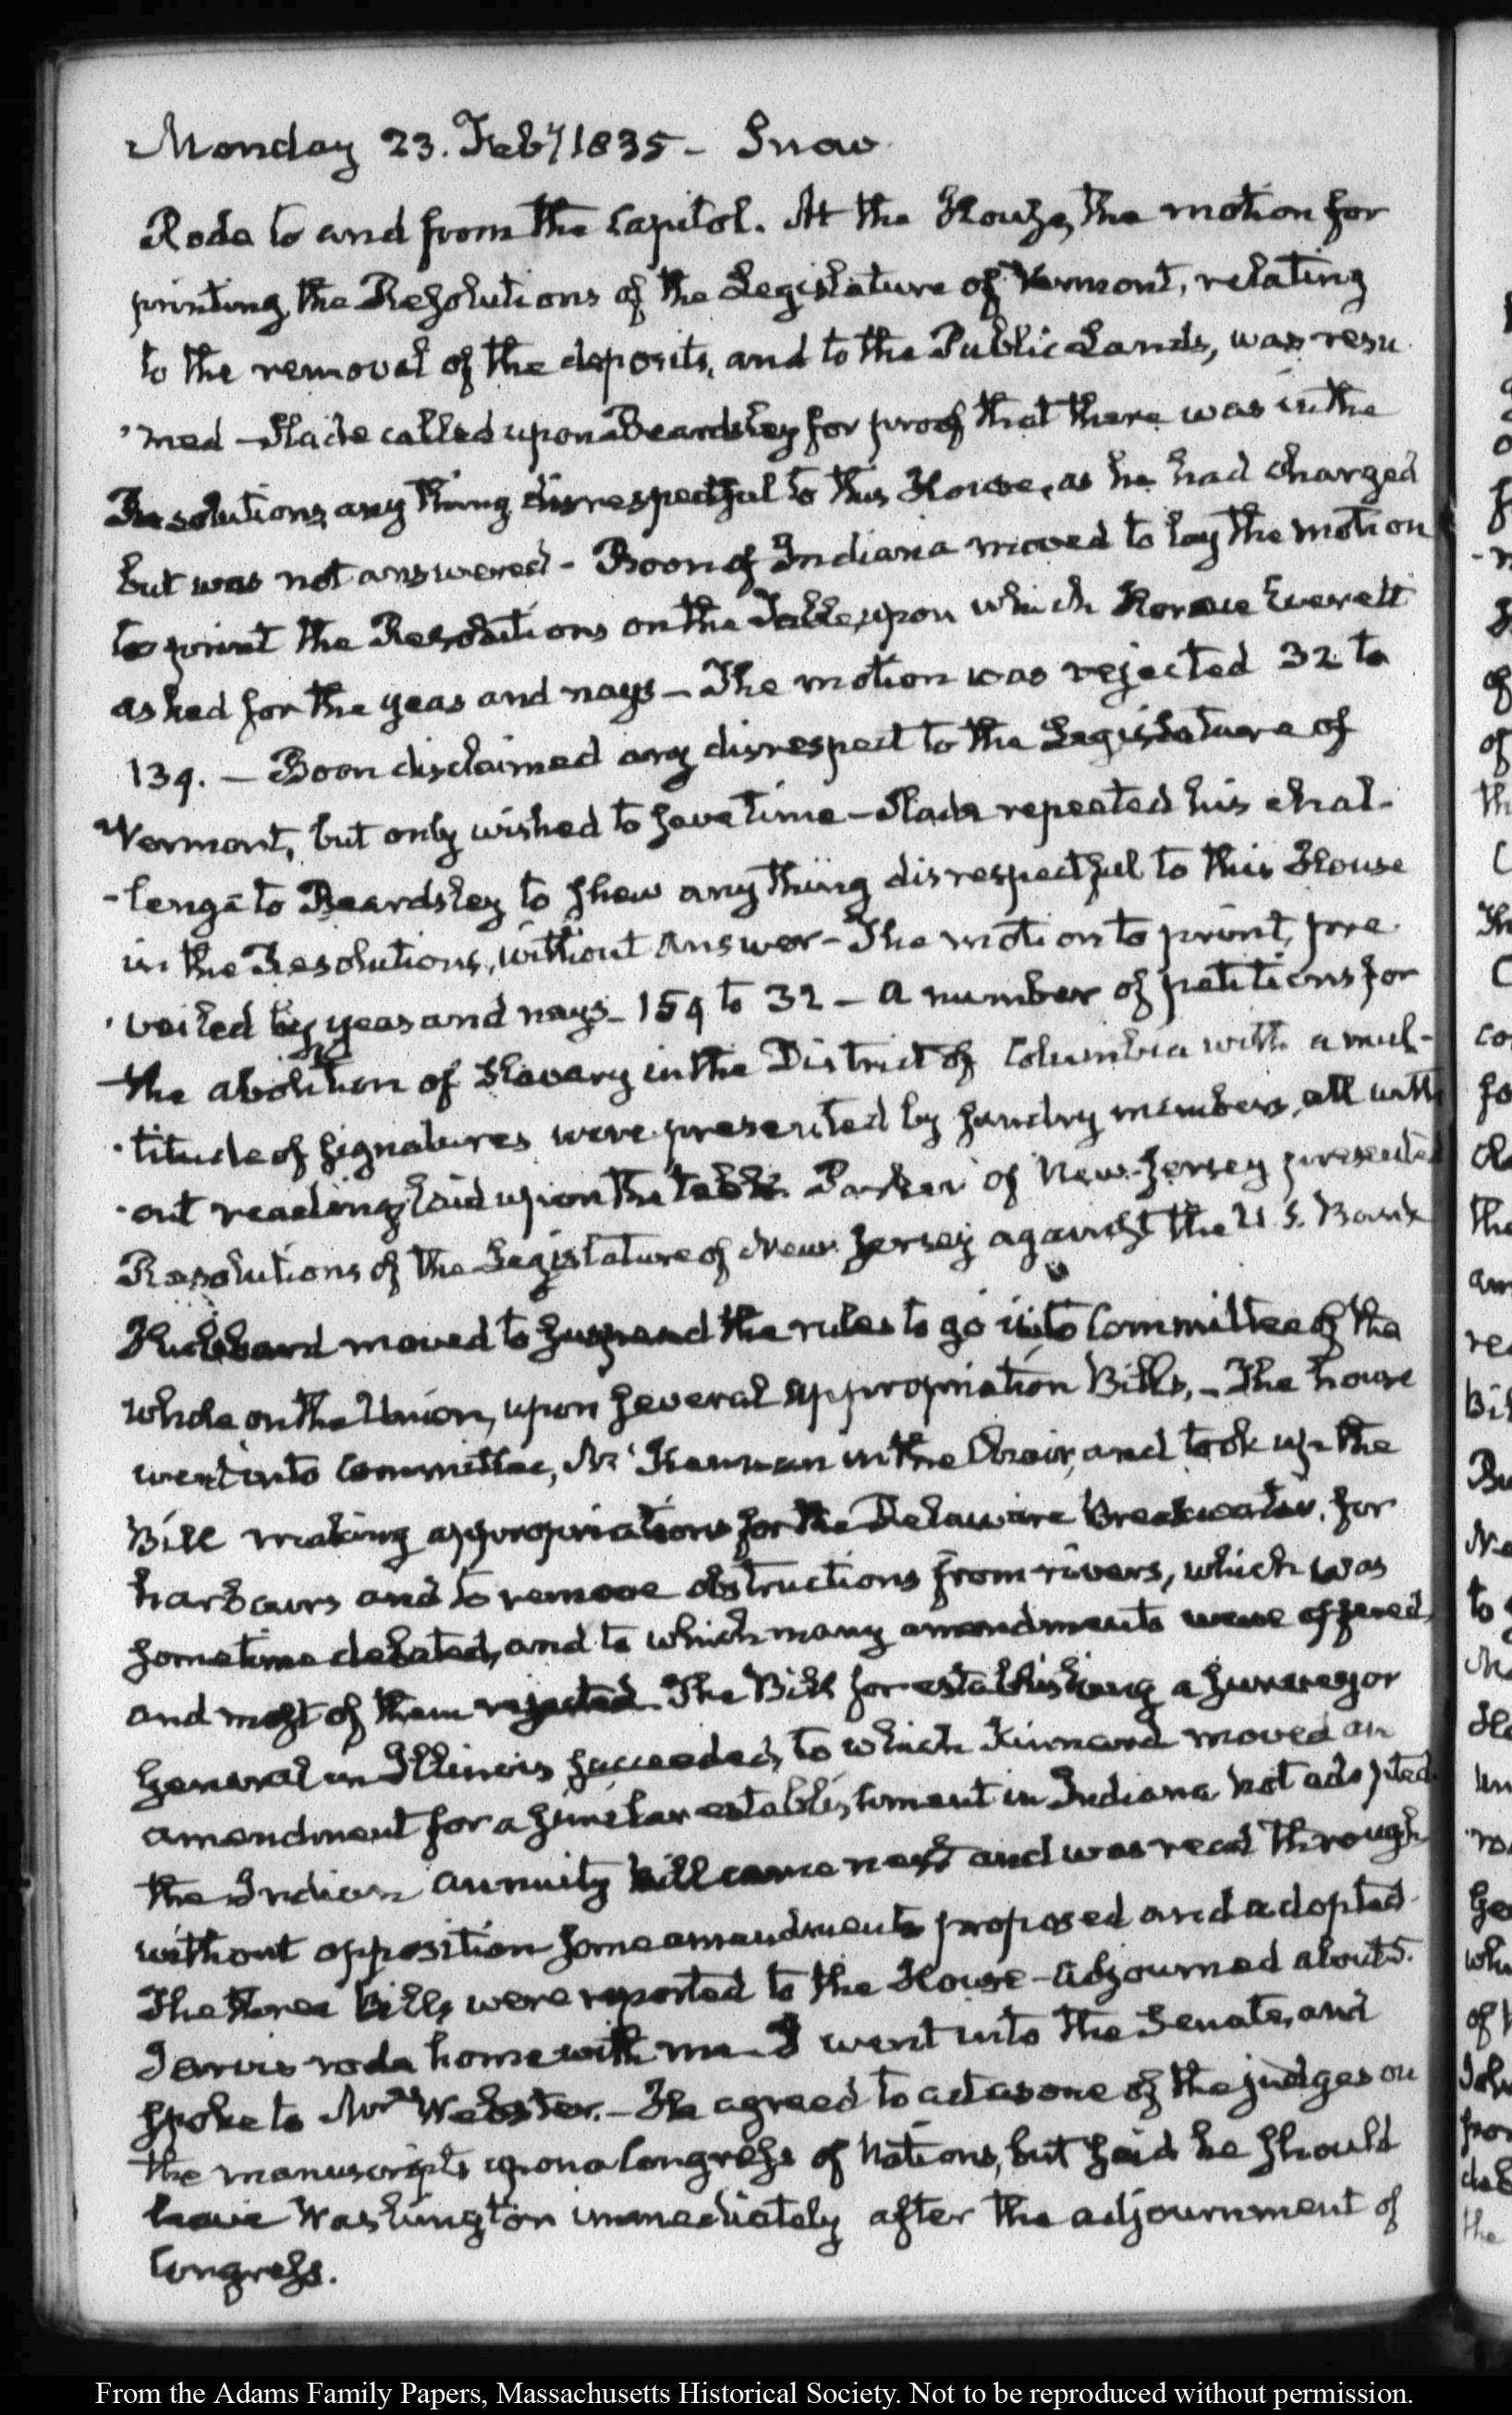 Monday 23. Feby 1835 - Snow
Rode to and from the Capitol. At the House, the motion for
printing the Resolutions of the Legislature of Vermont, relating
to the removal of the deposits, and to the Public Lands, was resu
'med - Slade called upon Beardsley for proof that there was in the
Resolutions any thing disrespectful to this House, as he had charged
but was not answered - Boon of Indiana moved to lay the motion
to print the Resolutions on the Table, upon which Horace Everett
asked for the yeas and nays - The motion was rejected 32 to
139. - Boon disclaimed any disrespect to the Legislature of
Vermont, but only wished to save time - Slade repeated his chal-
-lenge to Beardsley to shew any thing disrespectful to this House
in the Resolutions, without answer - The motion to print, pre
'vailed by yeas and nays - 159 to 32 - A number of petitions for
the abolition of Slavery in the District of Columbia with a mul-
-titude of signatures were presented by sundry members, all with
-out reading laid upon the table. Parker of New-Jersey presented
Resolutions of the Legislature of New Jersey against the U.S. Bank
Hubbard moved to suspend the rules to go into Committee of the
whole on the Union, upon several appropriation Bills, - The house
went into Committee, in the Chair, and took up the
Bill making appropriations for the Delaware Breakwater, for
harbours and to remove obstructions from rivers, which was
sometime debated, and to which many amendments were offered,
and most of them rejected. The Bill for establishing a Surveyor
General in Illinois succeeded, to which Kinnard moved an
amendment for a similar establishment in Indiana not adopted
the Indian annuity bill came next and was read through
without opposition some amendments proposed and adopted.
The three Bills were reported to the House - Adjourned about 5.
Jarvis rode home with me - I went into the Senate, and
spoke to Mr Webster. - He agreed to act as one of the judges on
the manuscripts upon a Congress of Nations, but said he should
leave Washington immediately after the adjournment of
Congress.
From the Adams Family Papers, Massachusetts Historical Society. Not to be reproduced without permission.